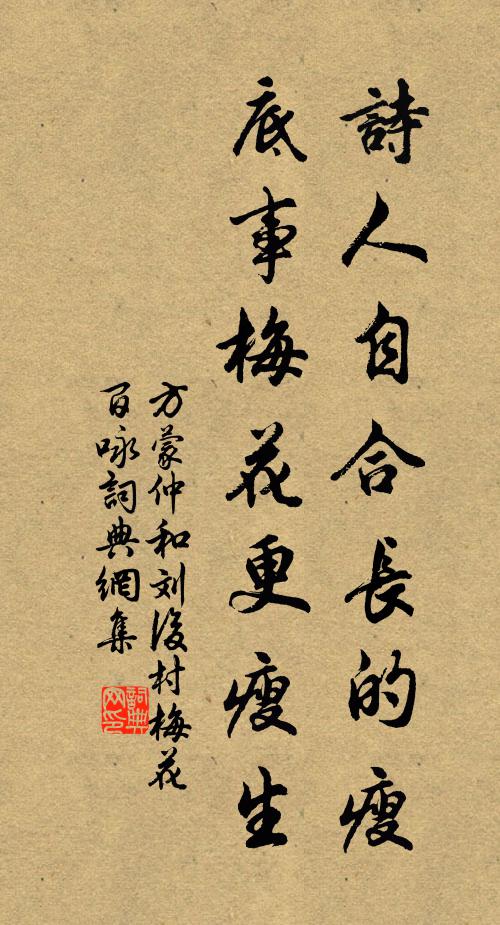 詩人自合長的瘦
底事梅花更瘦生
方蒙仲和刘後村梅花
百咏詞典網集
詞典
网印